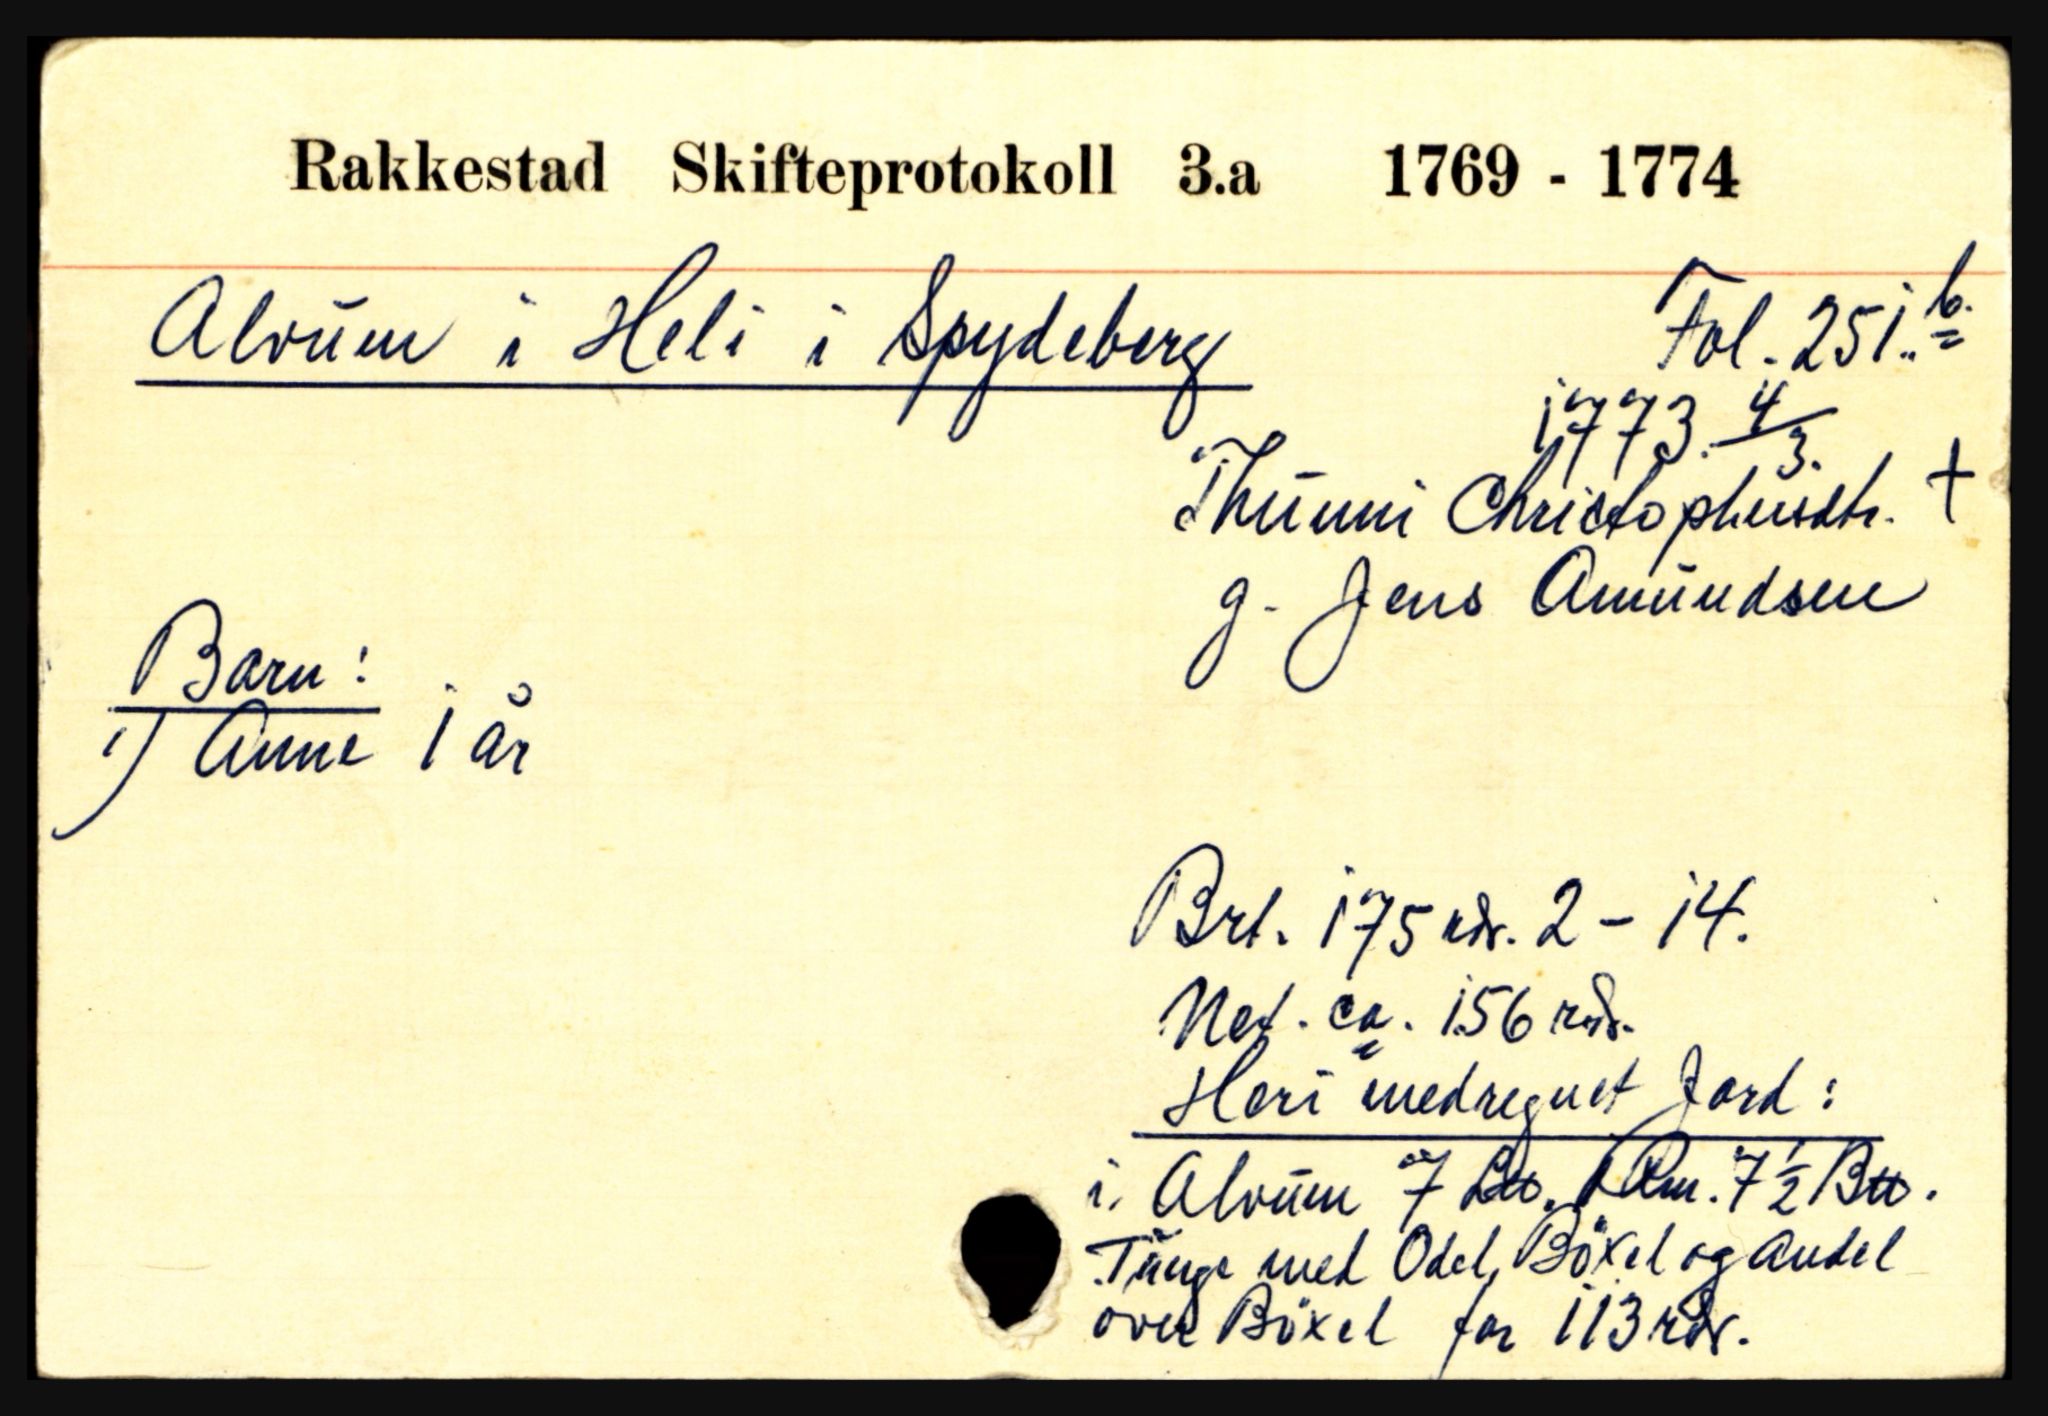 Rakkestad Skifteprotokoll 3.a 1769 - 1774
Alvum i Heli i Spydeberg
Fol. 251.b.
1773. 4/3.
Thumri Christophersdtr. +
g. Jens Amundsen
Barn:
1) Anne 1 år
Brt. 175 rdr. 2 - 14.
Net. ca. 156 rdr.
Heri medregnet Jord:
i. Alvum 7 Rm. 7 1/2
Tunge med Odel, Böxel og andel
over Böxel for 113 rdr.